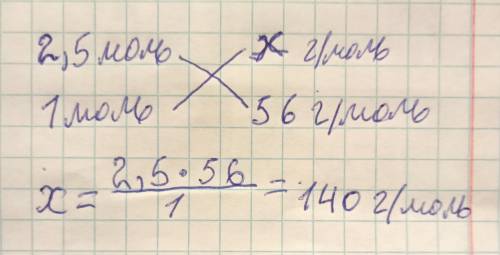 2,5 моль x г/моль
1 моль 56 г/моль
x = 2,5 · 56 / 1 = 140 г/моль